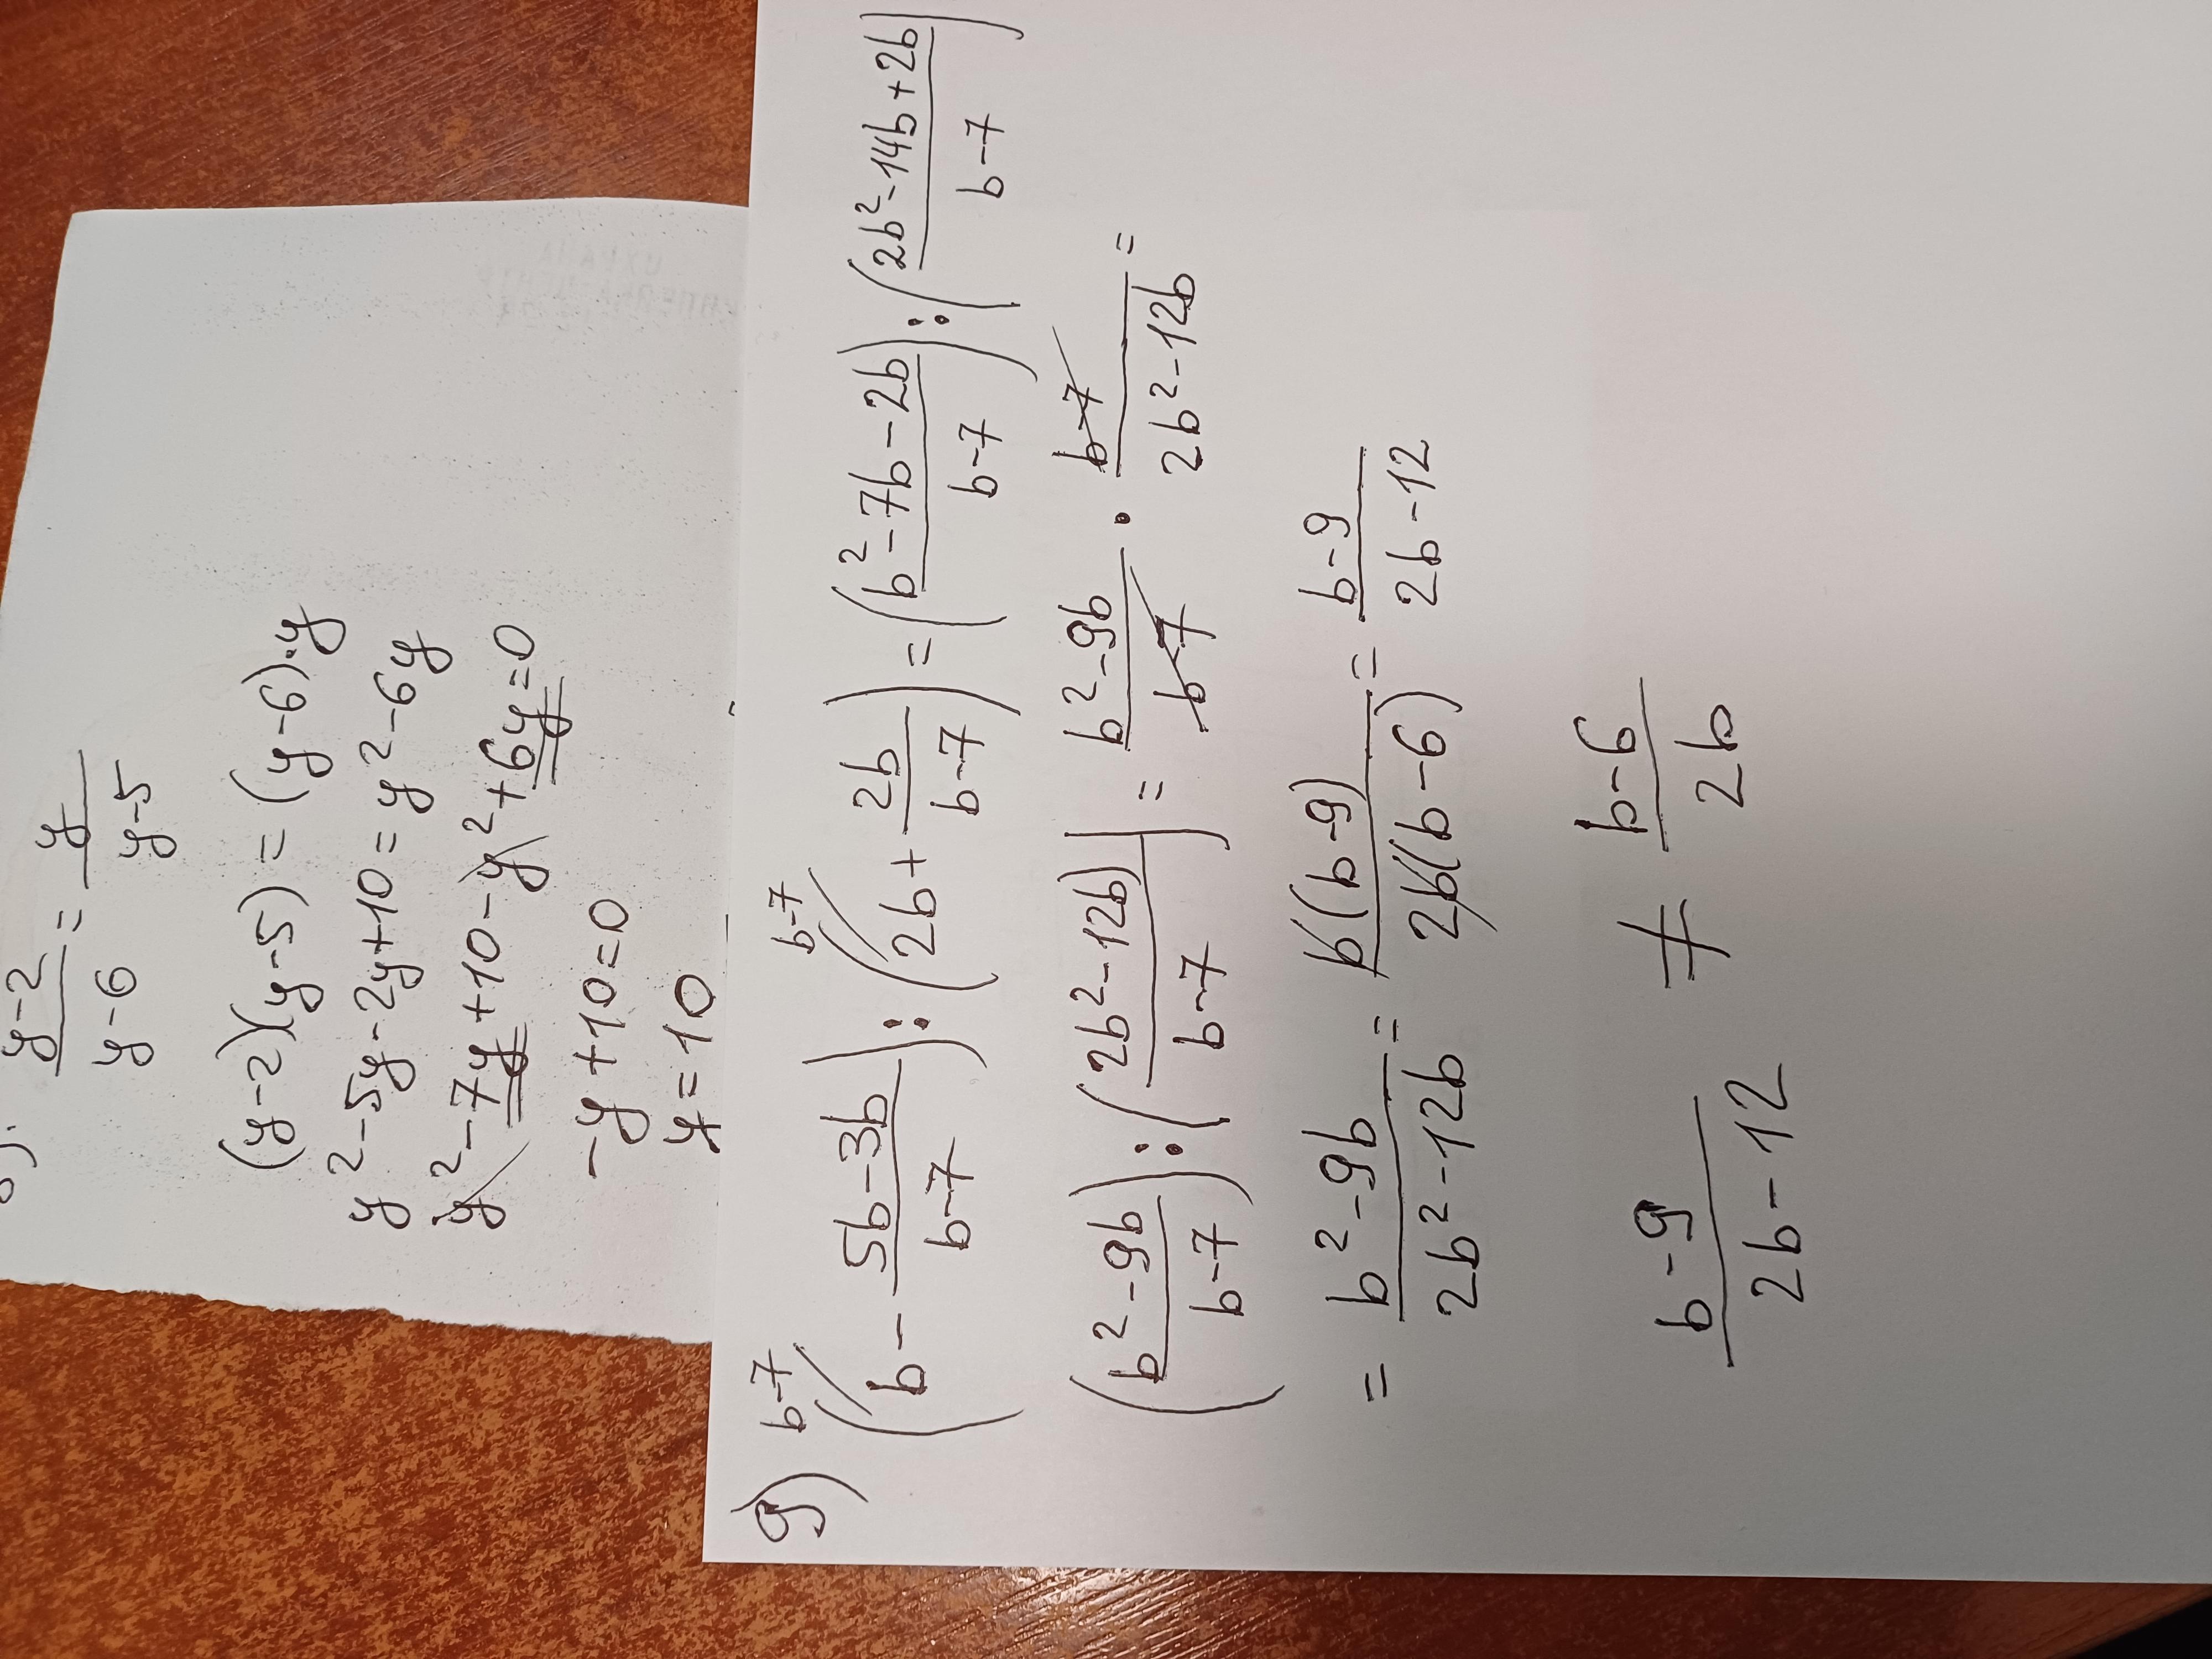 8).
y-2/y-6 = y/y-5
(y-2)(y-5) = (y-6)·y
y²-5y-2y+10=y²-6y
y²-7y+10-y²+6y=0
-y+10=0
y=10
9) (b - 5b-3b/b-7) : (2b + 2b/b-7) = (b²-7b-2b/b-7) : (2b²-14b+2b/b-7)
b-7 b-7
(b²-9b/b-7) : (2b²-12b/b-7) = b²-9b/b-7 · b-7/2b²-12b =
= b²-9b/2b²-12b = b(b-9)/2b(b-6) = b-9/2b-12
b-9/2b-12 ≠ b-6/2b